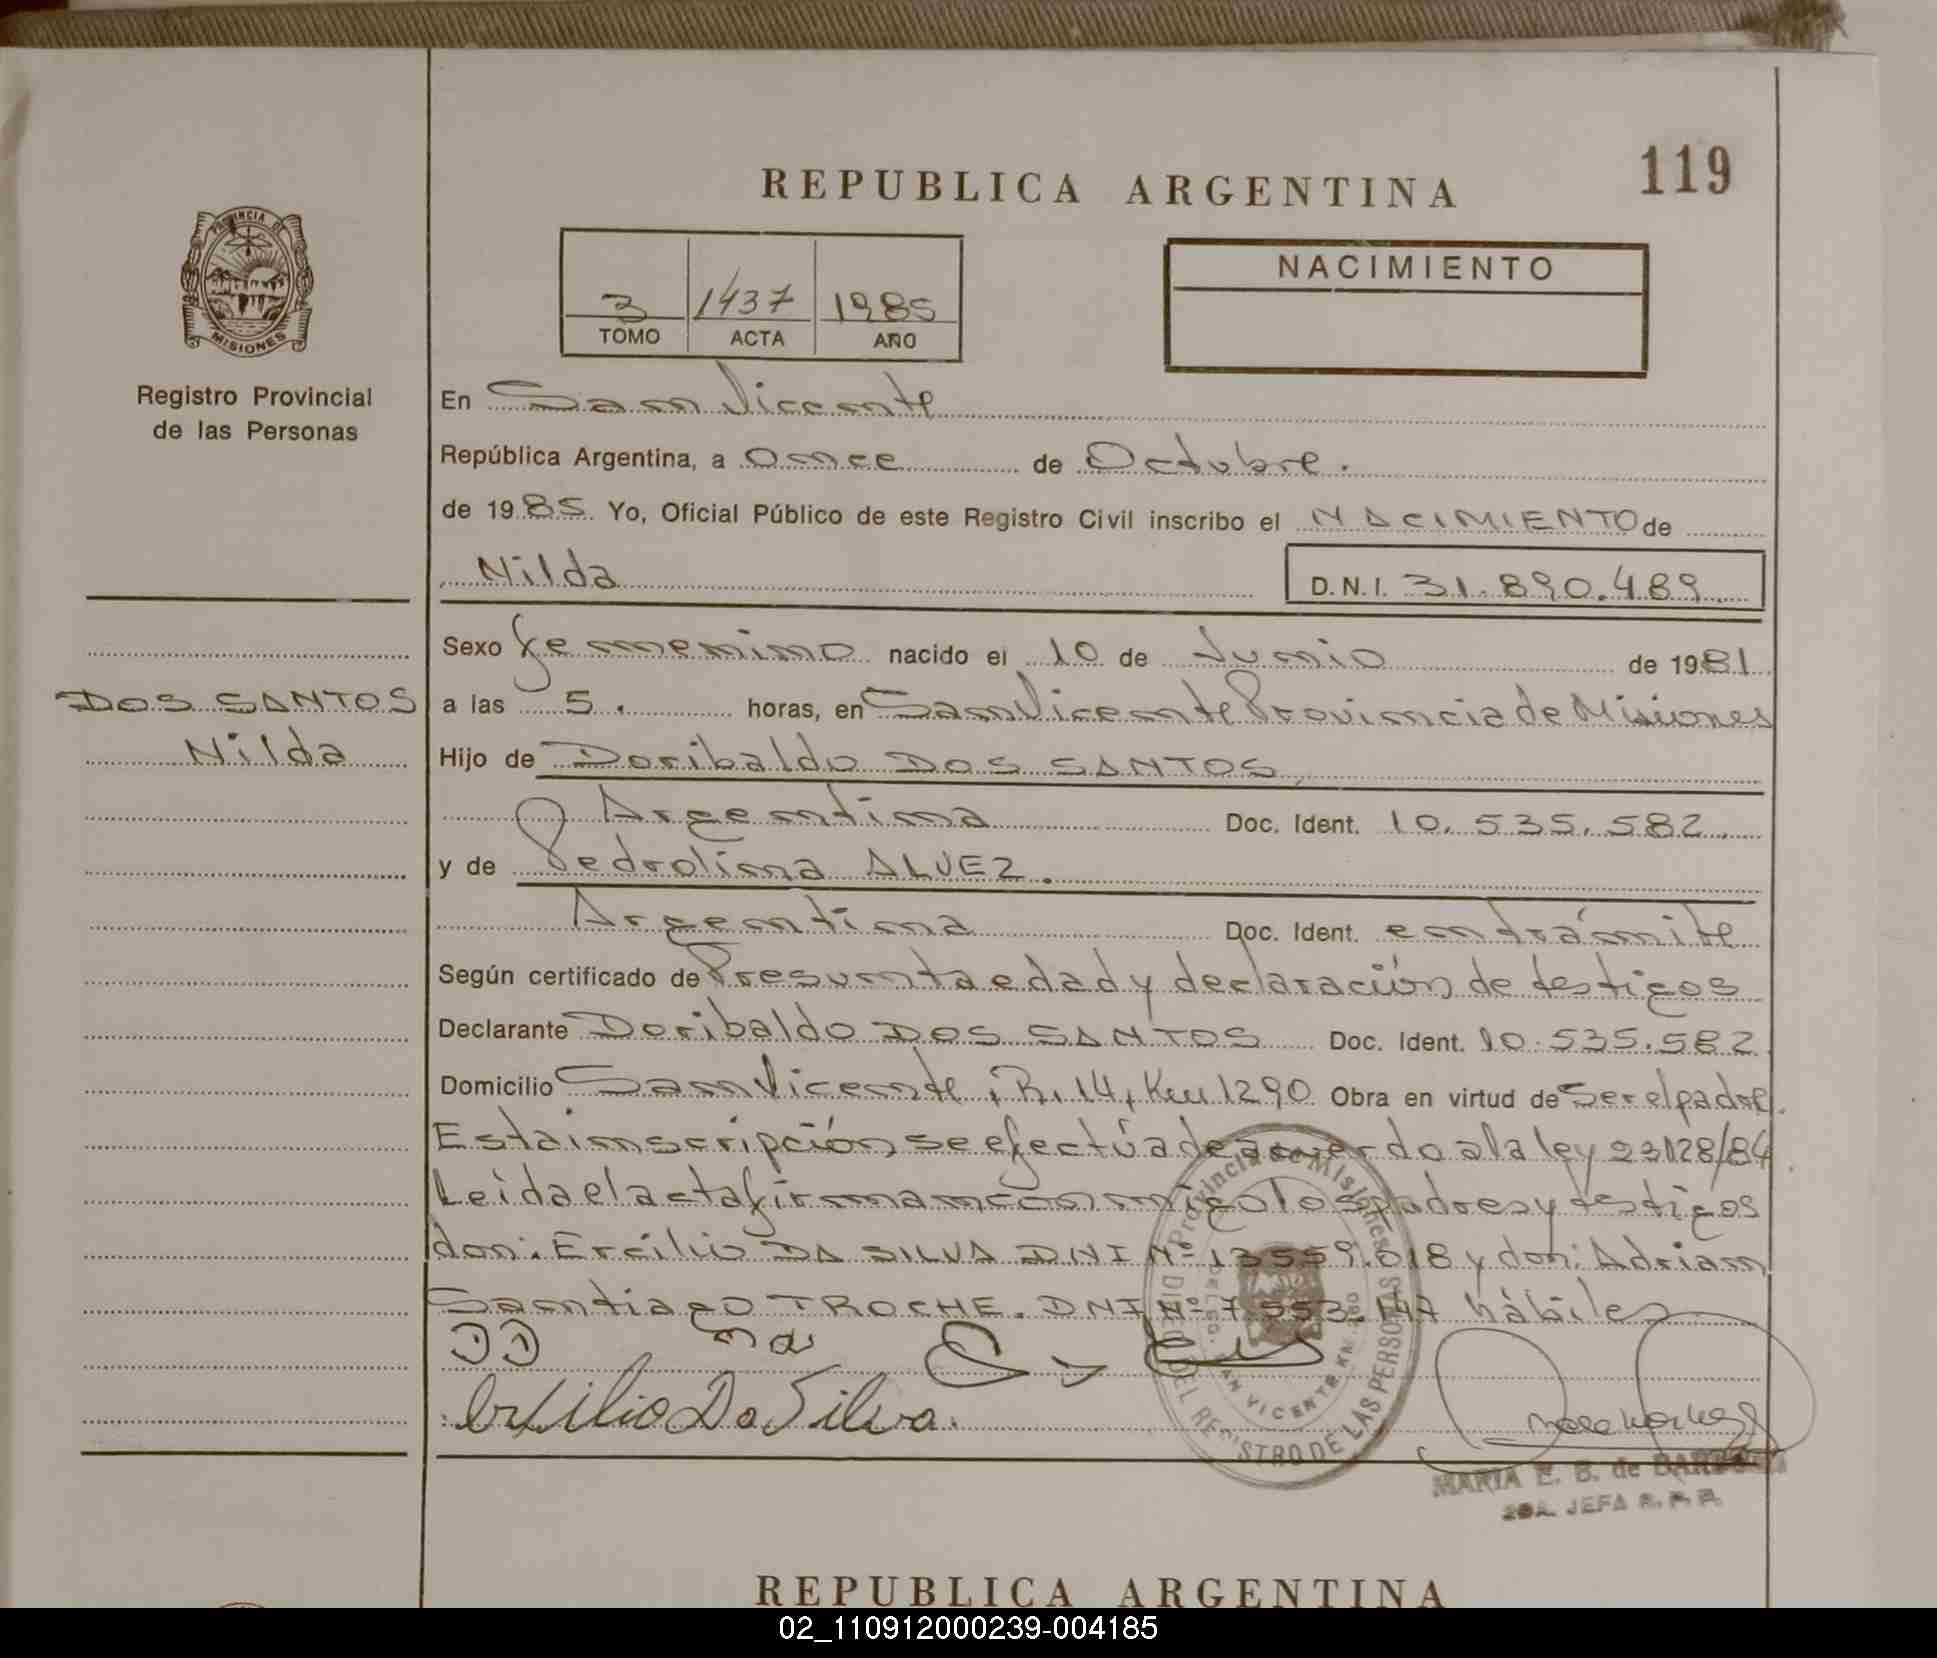 119
REPUBLICA ARGENTINA
PROVINCIA DE
MISIONES
Registro Provincial
de las Personas
3 1437 1985
TOMO ACTA AÑO
NACIMIENTO
En San Vicente
República Argentina, a Once de Octubre.
de 1985. Yo, Oficial Público de este Registro Civil inscribo el NACIMIENTO de
Nilda D.N.I. 31.890.489
DOS SANTOS
Nilda
Sexo femenino nacido el 10 de Junio de 1981
a las 5. horas, en San Vicente Provincia de Misiones
Hijo de Doribaldo DOS SANTOS,
Argentina Doc. Ident. 10.535.582.
y de Pedrolina ALVEZ.
Argentina Doc. Ident. en trámite
Según certificado de Presunta edad y declaración de testigos
Declarante Doribaldo DOS SANTOS Doc. Ident. 10.535.582
Domicilio San Vicente, R. 14, Km 1290 Obra en virtud de Ser el padre.
Esta inscripción se efectúa de acuerdo a la ley 23128/84
Leida el acta firman conmigo los padres y testigos
don: Ercilio DA SILVA DNI Nº 13559.018 y don: Adrian
Santiago TROCHE. DNI Nº 7.553.147 hábiles
DD
Ersilio Da Silva.
Provincia de Misiones
REGISTRO DE LAS PERSONAS
SAN VICENTE KM.
MARIA E. B. de
JEFA R. P. P.
REPUBLICA ARGENTINA
02_110912000239-004185